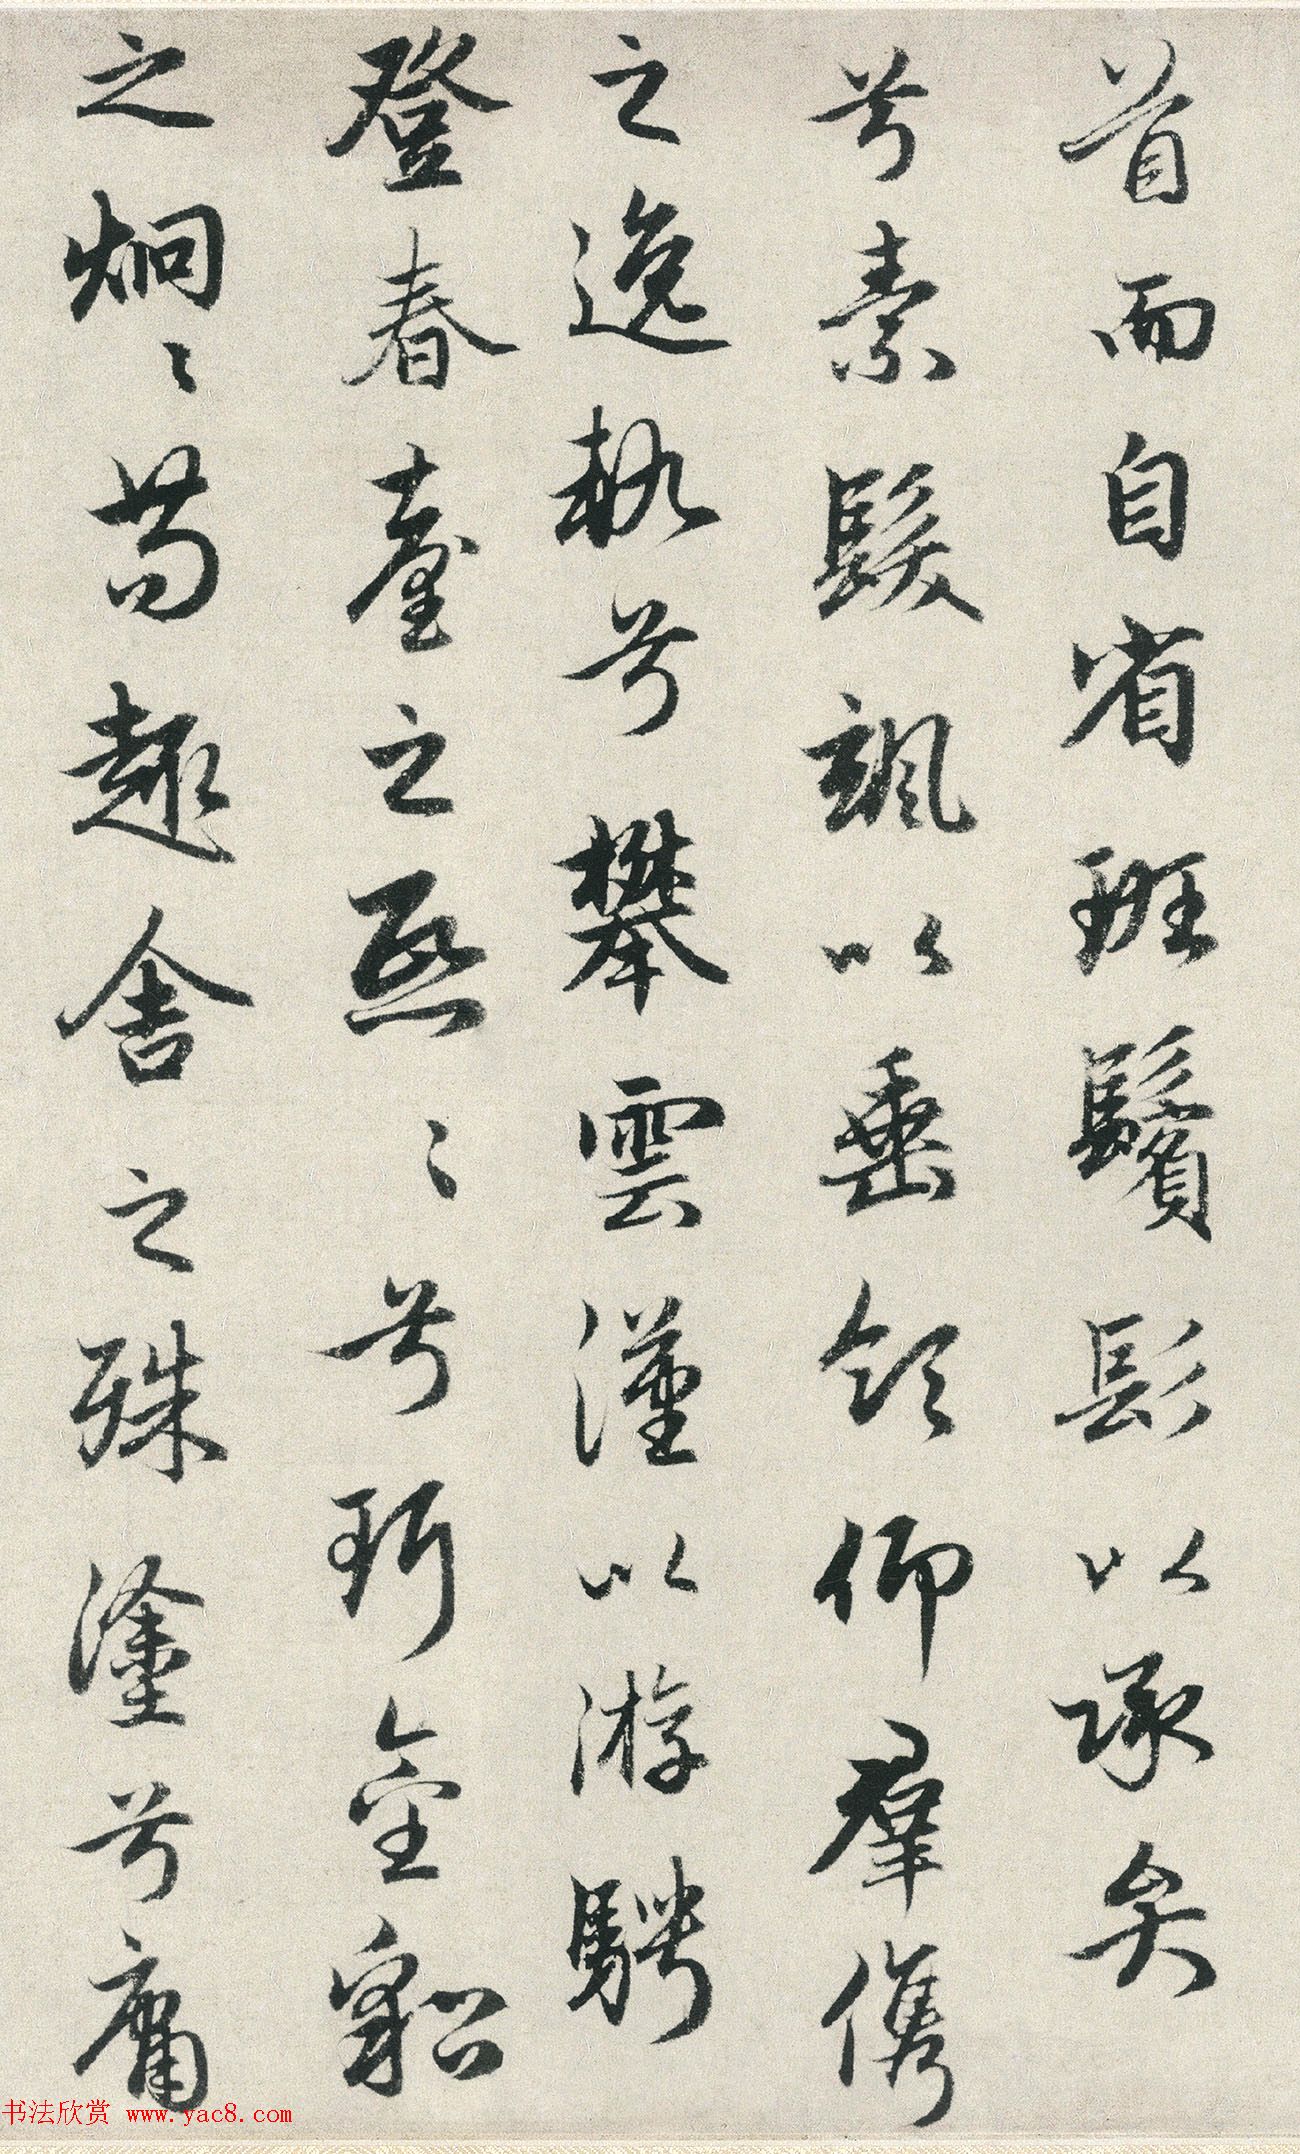 首而自省斑鬢髟以承弁
兮素髮颯以垂領仰群儁
之逸軌兮攀雲漢以游騁
登春臺之熙〻兮珥金貂
之炯〻苟趣舍之殊塗兮庸
书法欣赏 www.yac8.com